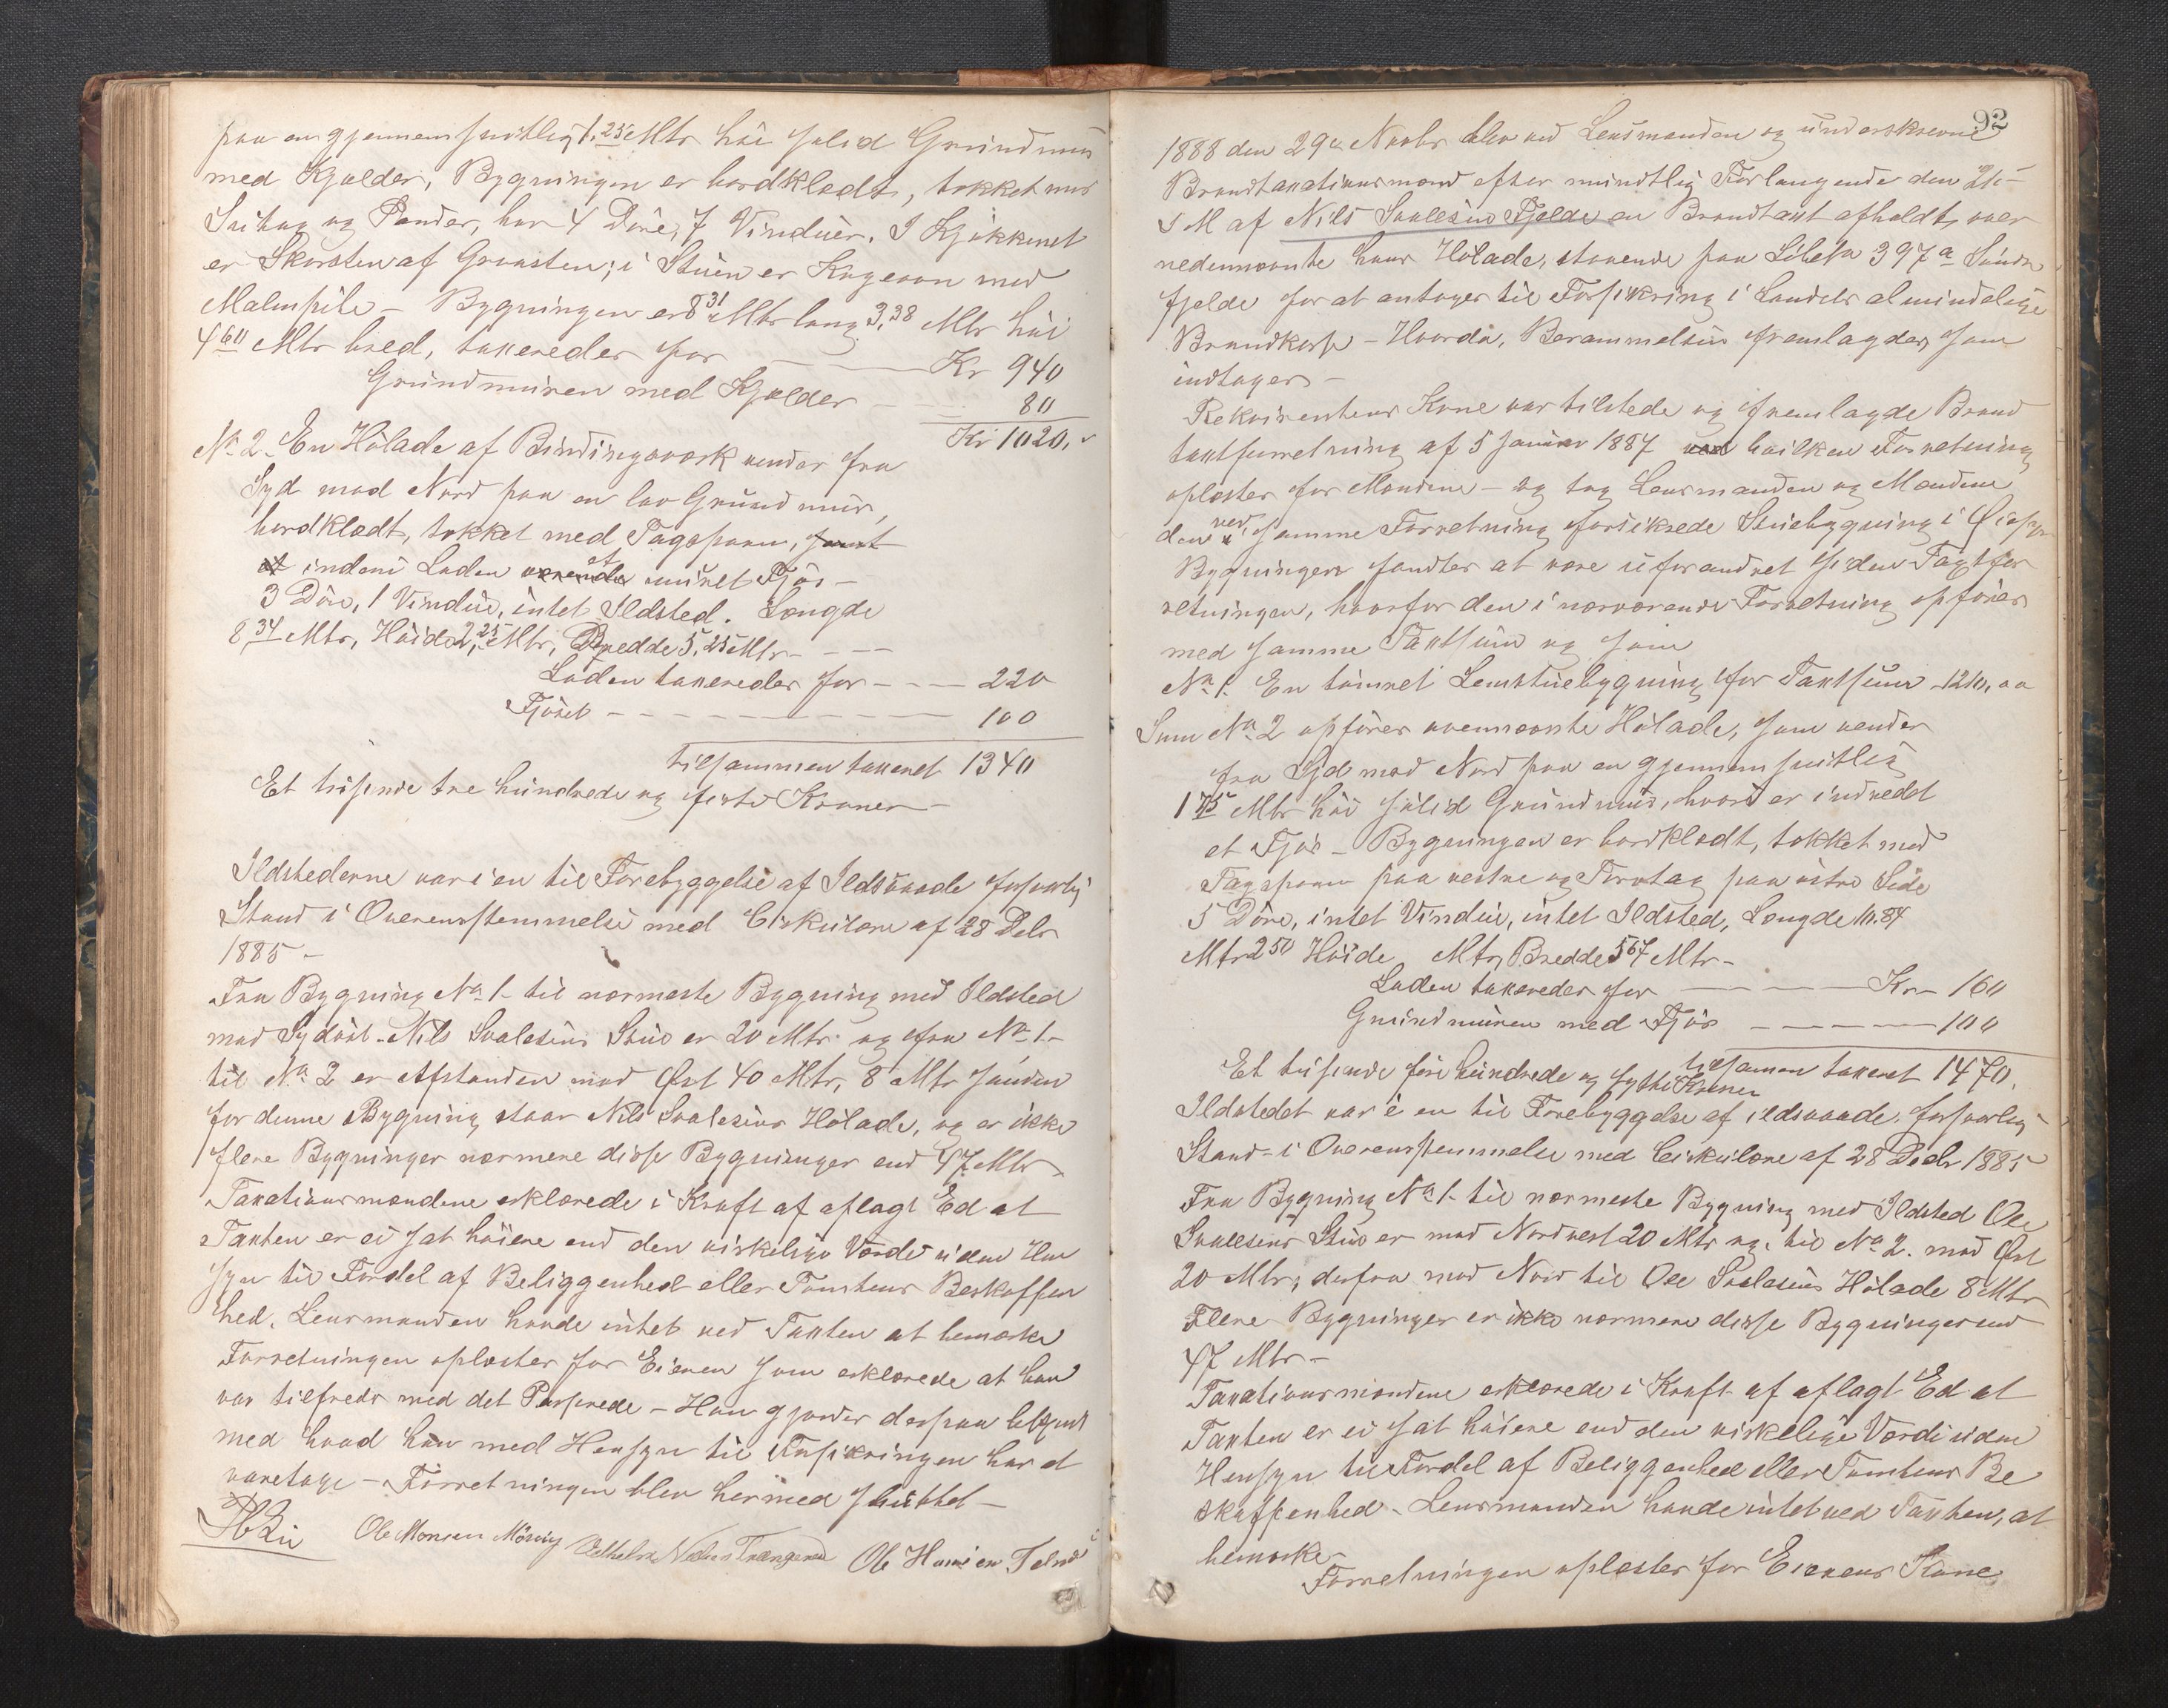 paa en gjennemsnitlig 1,25 Mtr höi solid Grundmur
med Kjælder, Bygningen er bordklædt, tækket med
Sutag og Pander, har 4 Döre, 7 Vinduer. I Kjökkenet
er Skorsten af Graasten; i Stuen er Kogeovn med
Malmpibe – Bygningen er 8,31 Mtr lang 3,38 Mtr höi
4,60 Mtr bred, taxeredes for — Kr 940
Grundmuren med Kjælder — 80
Kr 1020,
No 2. En Hölade af Bindingsværk vender fra
Syd mod Nord paa en lav Grundmur,
bordklædt, tækket med Tagspaan, samt
et indeni Laden værende et muret Fjös –
3 Döre, 1 Vindue, intet Ildsted. Længde
8,34 Mtr, Höide 2,25 Mtr, Bredde 5,25 Mtr – – –
Laden taxeredes for – – – 220
Fjöset – – – – 100
tilsammen taxeret 1340
Et tusinde tre hundrede og firti Kroner –
Ildstederne var i en til Forebyggelse af Ildsvaade forsvarlig
Stand i Overensstemmelse med Cirkulære af 28 Debr
1885 –
Fra Bygning No 1 – til nærmeste Bygning med Ildsted
mod Sydöst – Nils Sjalesens Stue er 20 Mtr. og fra No 1 –
til No 2 er Afstanden mod Öst 40 Mtr, 8 Mtr sönden
for denne Bygning staar Nils Sjalesens Hölade, og er ikke
flere Bygninger nærmere disse Bygninger end 47 Mtr –
Taxationsmændene erklærede i Kraft af aflagt Ed at
Taxten er ei sat höiere end den virkelige Værdi uden Hen
syn til Fordel af Beliggenhed eller Tomtens Beskaffen
hed, Lensmanden havde intet ved Taxten at bemærke
Forretningen oplæstes for Eieren som erklærede at han
var tilfreds med det Passerede – Han gjordes derpaa bekjendt
med hvad han med Hensyn til Forsikringen har at
varetage – Forretningen blev hermed sluttet –
Ole Monsen Mörvig Ole Hansen
92
1888 den 29de Novbr blev ved Lensmanden og underskrevne
Brandtaxationsmænd efter mundtlig Forlangende den 21de
d M af Nils Sjalesen Fjelde en Brandtaxt afholdt, over
nedennævnte hans Hölade, staaende paa Löbeno 397a Söndre
fjelde for at antages til Forsikring i Landets almindelige
Brandkasse – Hvorda, Berammelsen fremlagdes, som
indtages –
Rekvirentens Kone var tilstede og fremlagde Brand
taxtforretning af 5 Januar 1887 ved hvilken Forretning
oplæstes for Mændene – og tog Lensmanden og Mændene
den ved samme Forretning forsikrede Stuebygning i Öiesyn
Bygningen fandtes at være uforandret siden Taxtfor
retningen, hvorfor den i nærværende Forretning opföres
med samme Taxtsum og som
No 1. En tömret Lemstuebygning for Taxtsum – 1210,00
Som No 2 opföres ovennævnte Hölade, som vender
fra Syd mod Nord paa en gjennemsnitlig
1,75 Mtr höi solid Grundmur, hvori er indredet
et Fjös – Bygningen er bordklædt, tækket med
Tagspaan paa vestre og Torvtag paa östre Side
5 Döre, intet Vindue, intet Ildsted, Længde 10.84
Mtr 2,50 Höide Mtr, Bredde 5,67 Mtr –
Laden taxeredes for — Kr – 160
Grundmuren med Fjös — 100
tilsamen taxeret 1470,
Et tusinde fire hundrede og sytti Kroner
Ildstedet var i en til Forebyggelse af ildsvaade forsvarlig
Stand – i Overensstemmelse med Cirkulære af 28 Decbr 1885
Fra Bygning No 1 – til nærmeste Bygning med Ildsted Ole
Sjalesens Stue er mod Nordvest 20 Mtr og til No 2. mod Öst
20 Mtr; derfra mod Nord til Ole Sjalesens Hölade 8 Mtr
Flere Bygninger er ikke nærmere disse Bygninger end
47 Mtr –
Taxationsmændene erklærede i Kraft af aflagt Ed at
Taxten er ei sat höiere end den virkelige Værdi uden
Hensyn til Fordel af Beliggenhed eller Tomtens Be
skaffenhed – Lensmanden havde intet ved Taxten, at
bemærke –
Forretningen oplæstes for Eierens Kone